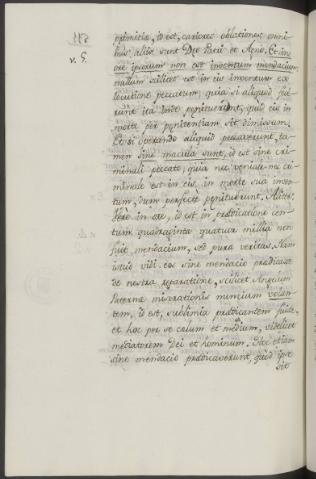 primitiæ, id est, cariores oblationes omni-
bus aliis sunt Deo Patri et Agno. Et in
v. 5. ore ipsorum non est inventum mendacium,
nullum scilicet est in eis inventum ex
locutione peccatum; quia si aliquid fue-
runt ita inde penituerunt, quod eis in
morte per penitentiam sit dimissum.
Et si operando aliquid peccaverunt, ta-
men sine macula sunt, id est sine cri-
minali peccato; quia nec veniale nec cri-
minale est in eis, in morte sua inven-
tum, dum perfecte penituerunt. Aliter:
Vere in ore, id est in prædicatione cen-
tum quadraginta quatuor millia non
fuit mendacium, sed pura veritas. Nam
istis vidi eos sine mendacio prædicare
de nostra reparatione, scilicet Angelum
paternæ miserationis nuncium volan-
tem, id est, sublimia prædicantem fuisse,
et hoc per se cælum et medium, videlicet
mediatorem Dei et hominum. Sibi etiam
sine mendacio prædicaverunt, quod ipse
sit